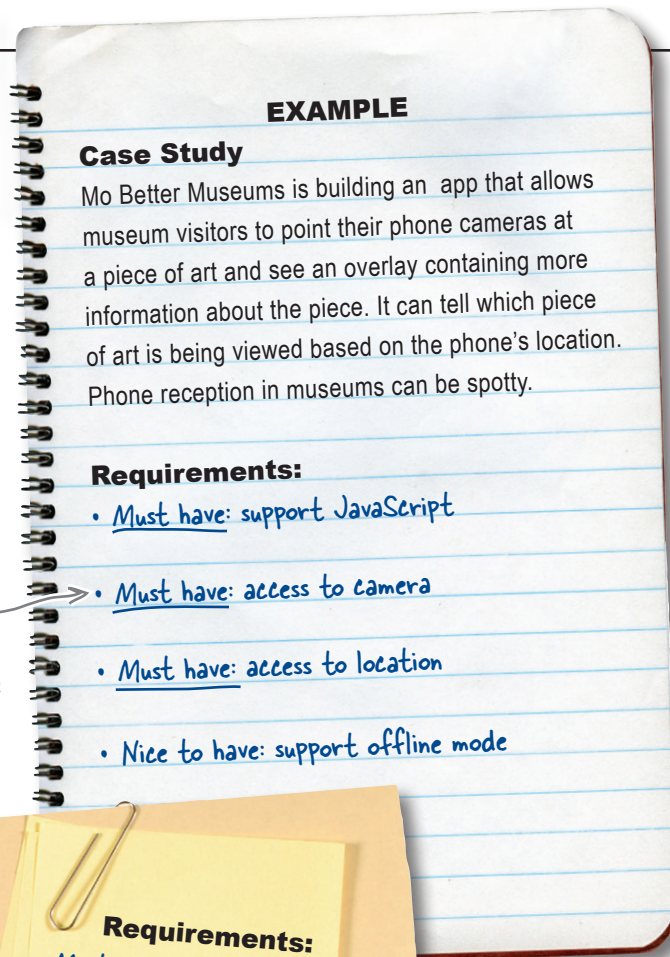 EXAMPLE
Case Study
Mo Better Museums is building an app that allows
museum visitors to point their phone cameras at
a piece of art and see an overlay containing more
information about the piece. It can tell which piece
of art is being viewed based on the phone's location.
Phone reception in museums can be spotty.
Requirements:
• Must have: support JavaScript
• Must have: access to camera
• Must have: access to location
• Nice to have: support offline mode
Requirements: